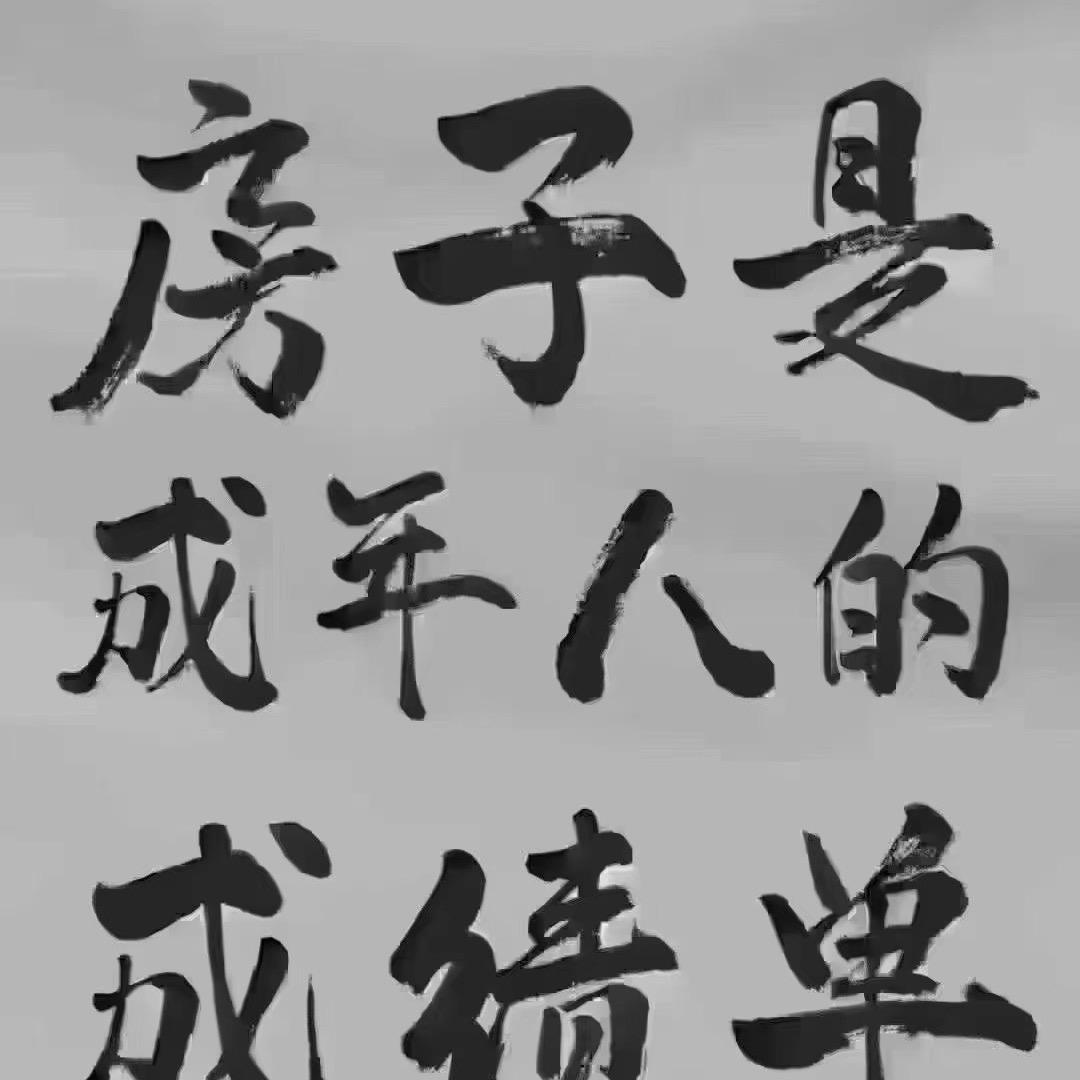 房子是
成年人的
成绩单